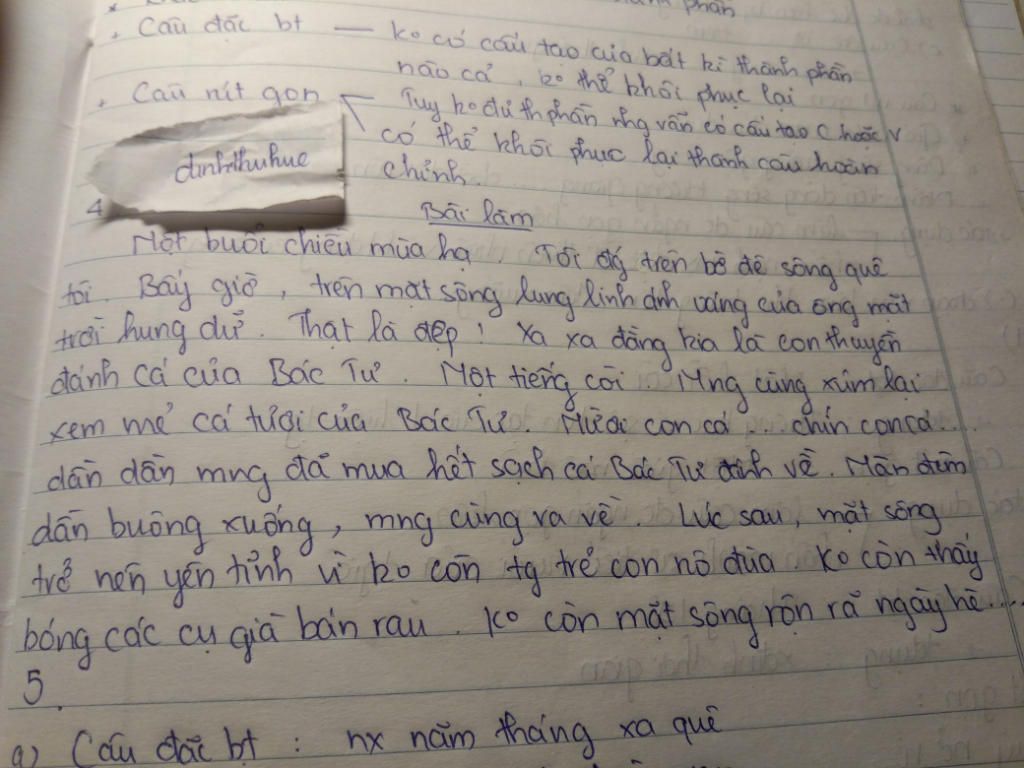 thành phần
+ Câu đặc bt — ko có cấu tạo của bất kì thành phần
nào cả, ko thể khôi phục lại
+ Câu rút gọn — Tuy ko đủ thphần nhg vẫn có cấu tạo C hoặc V
có thể khôi phục lại thành câu hoàn
chỉnh.
dinhthuhue
4
Bài làm
Một buổi chiều mùa hạ. Tôi đứg trên bờ đê sông quê
tôi. Bấy giờ, trên mặt sông lung linh ánh vàng của ông mặt
trời hung dữ. Thật là đẹp! Xa xa đằng kia là con thuyền
đánh cá của Bác Tư. Một tiếng còi. Mng cùng xúm lại
xem mẻ cá tươi của Bác Tư. Mười con cá... chín con cá....
dần dần mng đã mua hết sạch cá Bác Tư đánh về. Màn đêm
dần buông xuống, mng cùng ra về. Lúc sau, mặt sông
trở nên yên tĩnh vì ko còn tg trẻ con nô đùa. Ko còn thấy
bóng các cụ già bán rau. Ko còn mặt sông rộn rã ngày hè....
5.
a) Câu đặc bt : nx năm tháng xa quê